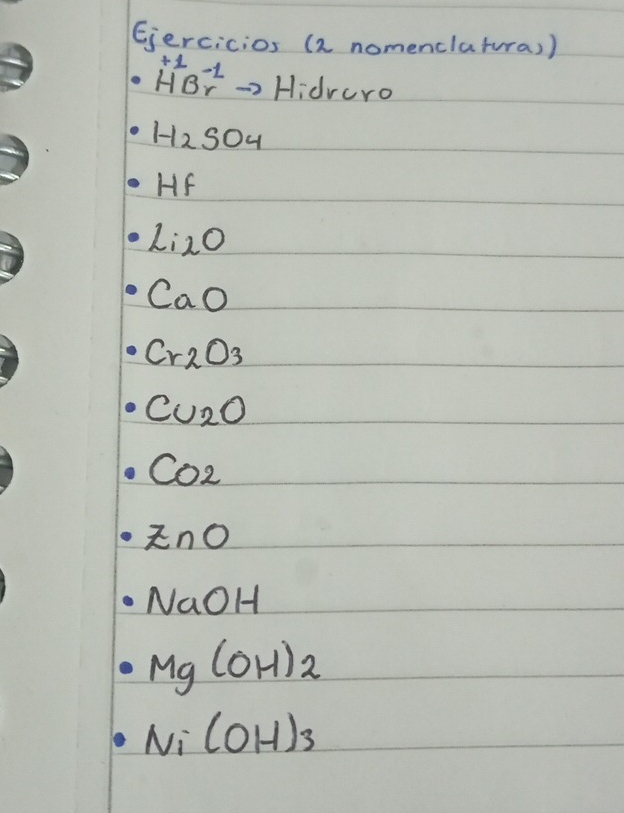 Ejercicios (2 nomenclaturas)
+1 -1
• HBr → Hidruro
• H2SO4
• Hf
• Li2O
• CaO
• Cr2O3
• Cu2O
• CO2
• ZnO
• NaOH
• Mg (OH)2
• Ni (OH)3